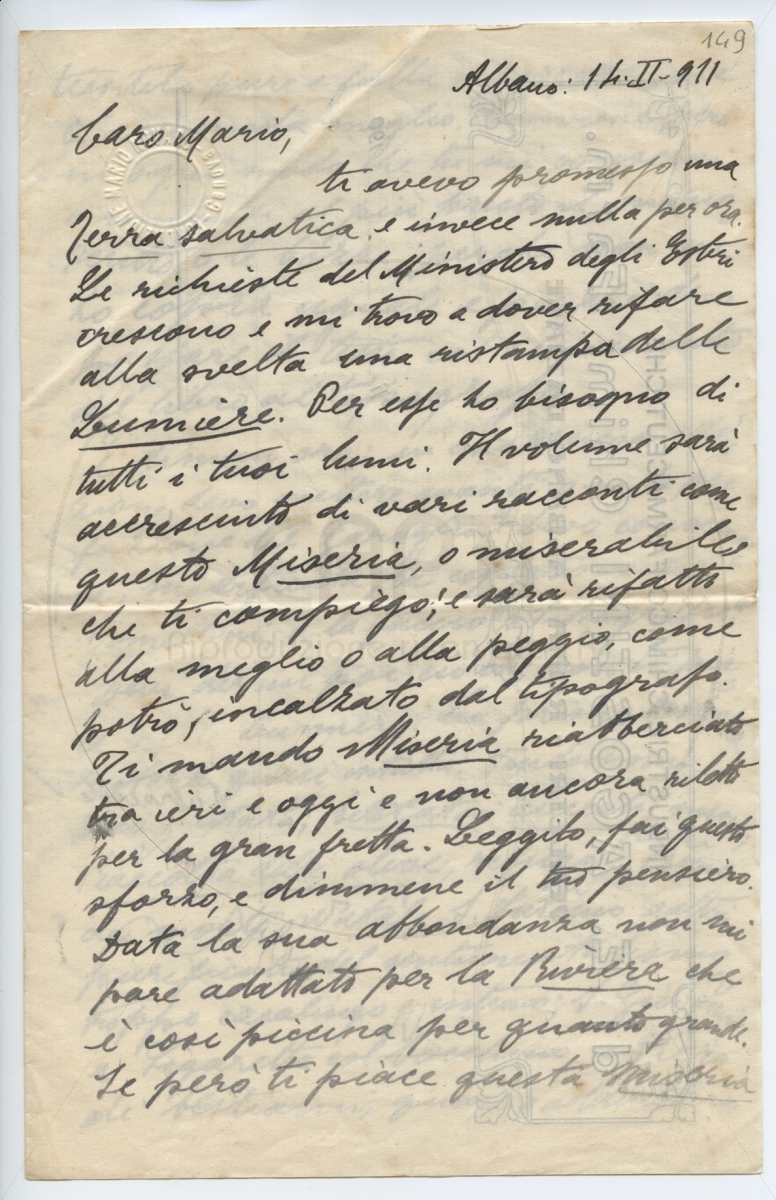 149
Albano: 14-II-911
Caro Mario,
ti avevo promesso una
Terra salvatica e invece nulla per ora.
Le richieste del Ministero degli Esteri
crescono e mi trovo a dover rifare
alla svelta una ristampa delle
Lumière. Per esse ho bisogno di
tutti i tuoi lumi. Il volume sarà
accresciuto di vari racconti come
questo Miseria, o miserabile,
che ti compiego; e sarà rifatto
alla meglio o alla peggio, come
potrò, incalzato dal tipografo.
Ti mando Miseria riabberciato
tra ieri e oggi e non ancora riletto
per la gran fretta. Leggilo, fai questo
sforzo, e dimmene il tuo pensiero.
Data la sua abbondanza non mi
pare adattato per la Rivièra che
è così piccina per quanto grande.
Se però ti piace questa miseria